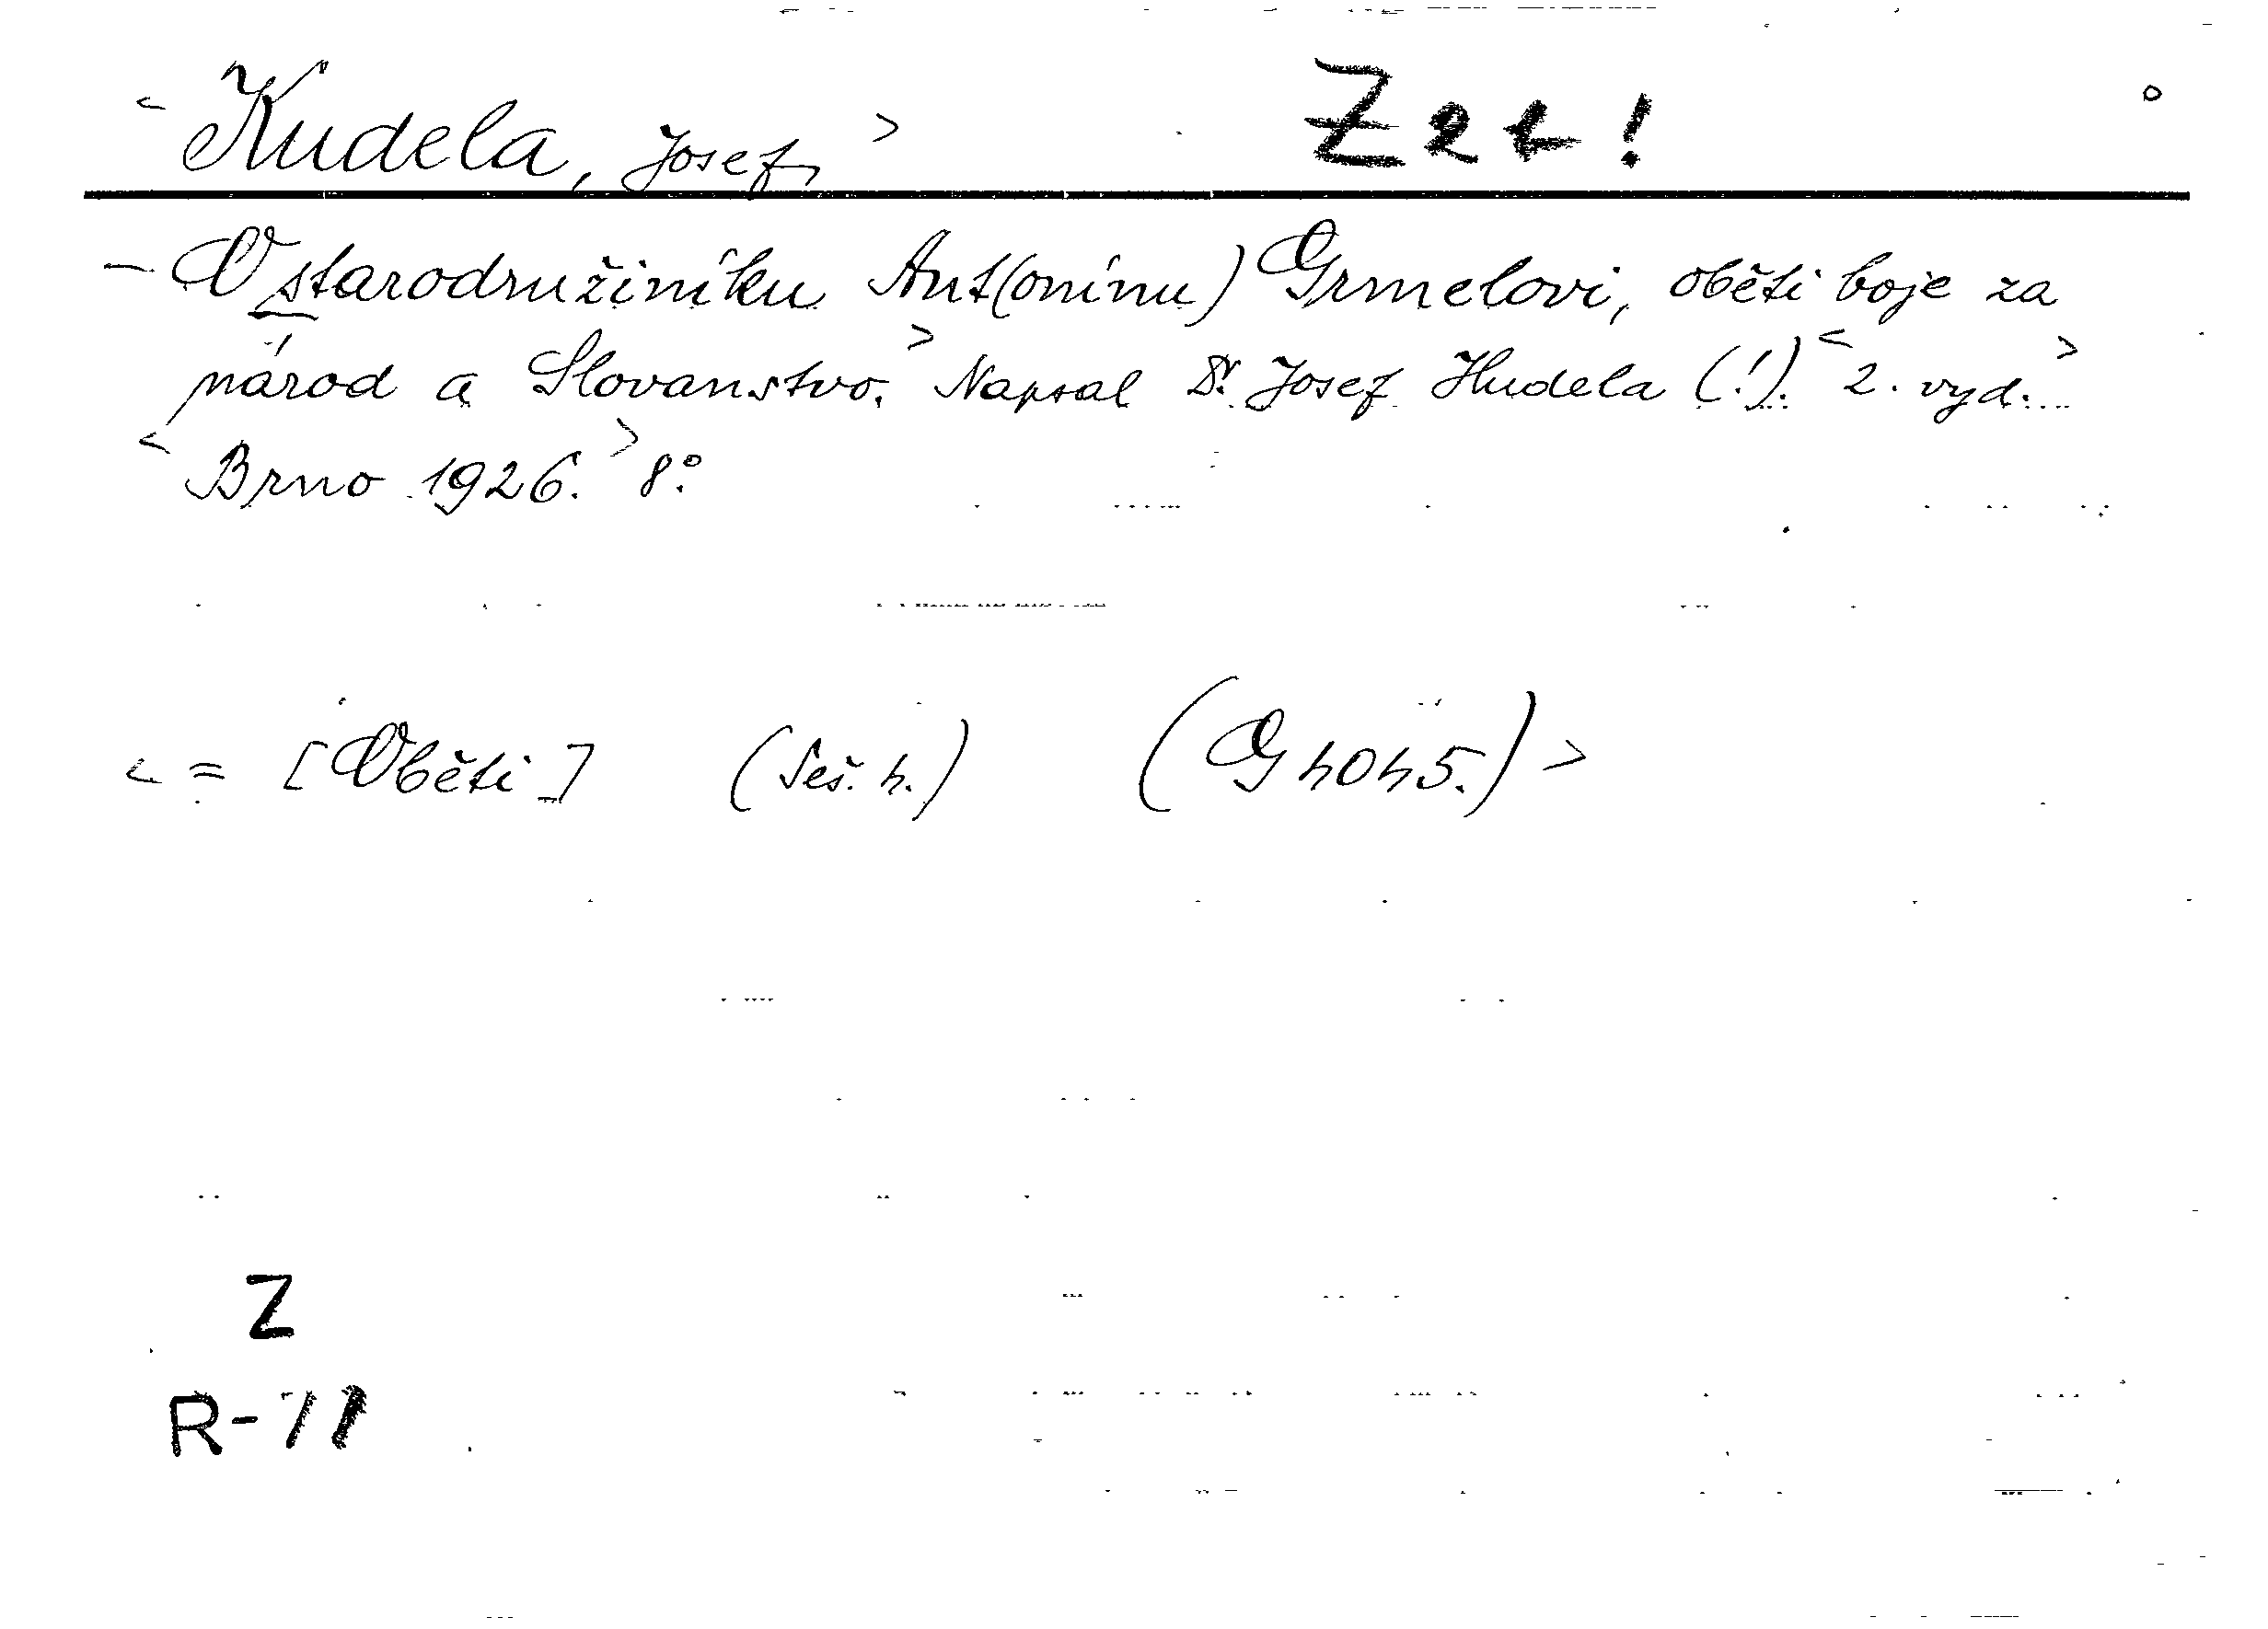 < Kudela, Josef, > Z 21 !
- O starodružiníku Ant(onínu) Grmelovi, oběti boje za
národ a Slovanstvo. > Napsal Dr. Josef Hudela (!). < 2. vyd. >
< Brno 1926. > 8°.
< = [Oběti] (Seš. 4.) (G 4045.) >
Z
R-71